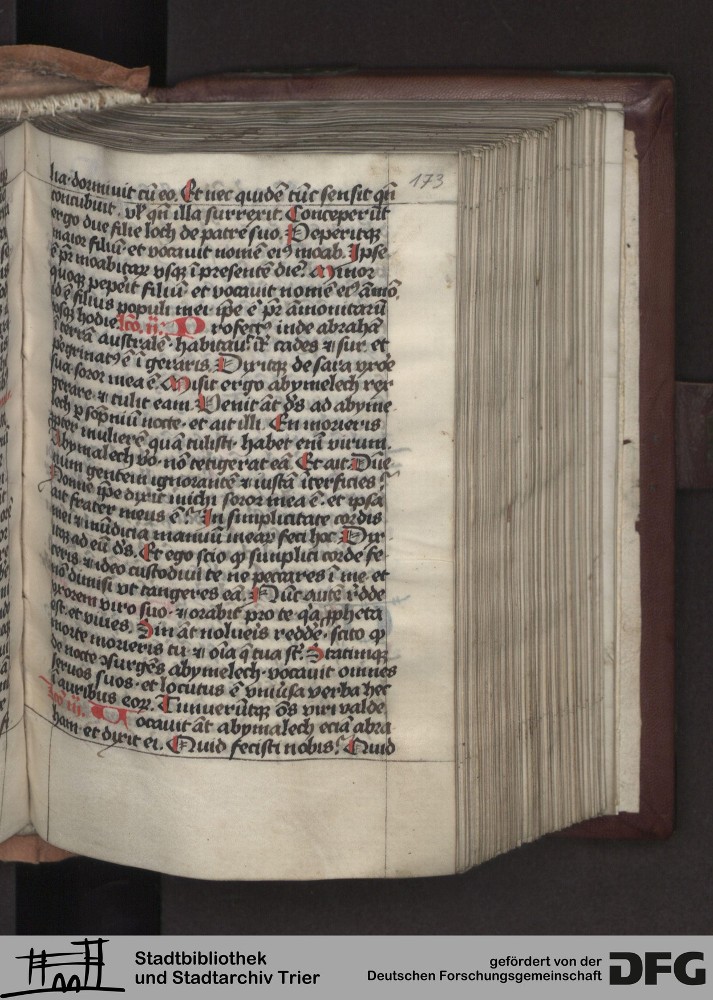 173
lia· dormiuit cū eo. Et nec quidē tūc sensit qn̄
concubuit· vl' qn̄ illa surrexit. Conceperūt
ergo due filie loth de patre suo. Peperitqꝫ
maior filiū· et vocauit nomē eiꝰ moab. Ipse
ē pr̄ moabitaꝝ vsqꝫ ī presentē diē. Minor
quoqꝫ peperit filiū et vocauit nomē eiꝰ āmō,
id ē filius populi mei· ip̄e ē pr̄ āmonitarū
vsqꝫ hodie. lco. ii. Profectꝰ inde abrahā
ī terrā australē· habitauit īt' cades ⁊ sur. et
peg̾rinatꝰ ē ī geraris. Dixitqꝫ de sara vxōe
sua· soror mea ē. Misit ergo abymelech rex
gerare· ⁊ tulit eam. Uenit āt ds̄ ad abyme
lech ꝑ sōpniū nocte· et ait illi. En morieris
ꝓpter mulierē quā tulisti· habet enī virum.
Abymalech vo· nō tetigerat eā. Et ait. Dn̄e
num gentem ignorantē ⁊ iustā īterficies?
Nonne ip̄e dixit michi soror mea ē· et ipsa
ait frater meus ē? In simplicitate cordis
mei ⁊ mūdicia manuū meaꝝ feci hoc. Dix-
itqꝫ ad eū ds̄. Et ego scio ꝙ simplici corde fe-
ceris· ⁊ ideo custodiui te ne peccares ī me· et
nō dimisi vt tangeres eā. Nūc autē r̄dde
vxorem viro suo· ⁊ orabit pro te q̄a ꝓpheta
est· et viues. Sin āt nolueis reddē· scito ꝙ
morte morieris tu ⁊ oīa q̄ tua st̄. Statimqꝫ
de nocte ꝯsurgēs abymelech· vocauit omnes
seruos suos· et locutus ē vniūsa verba hec
ī auribus eoꝝ. Timuerūtqꝫ oēs viri valde
lco. iii. Uocauit āt abymalech eciā abra
ham· et dixit ei. Quid fecisti nobis? Quid
Stadtbibliothek
und Stadtarchiv Trier
gefördert von der
Deutschen Forschungsgemeinschaft
DFG